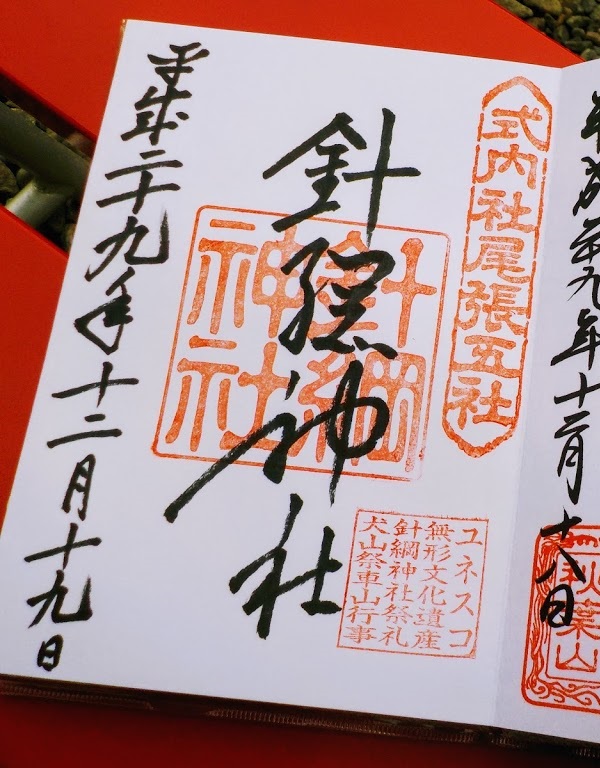 平成廿九年十二月十八日
秋葉山
式内社尾張五社
ユネスコ
無形文化遺産
針綱神社祭礼
犬山祭車山行事
針綱神社
針綱
神社
平成二十九年十二月十九日